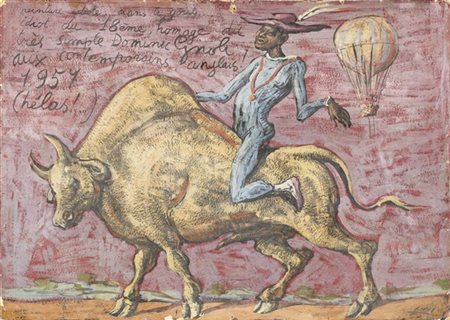 peinture dans le goût
du 18ème homage du
très simple Domenico Gnoli
aux contemporains anglais!
1957
(hélas!...)